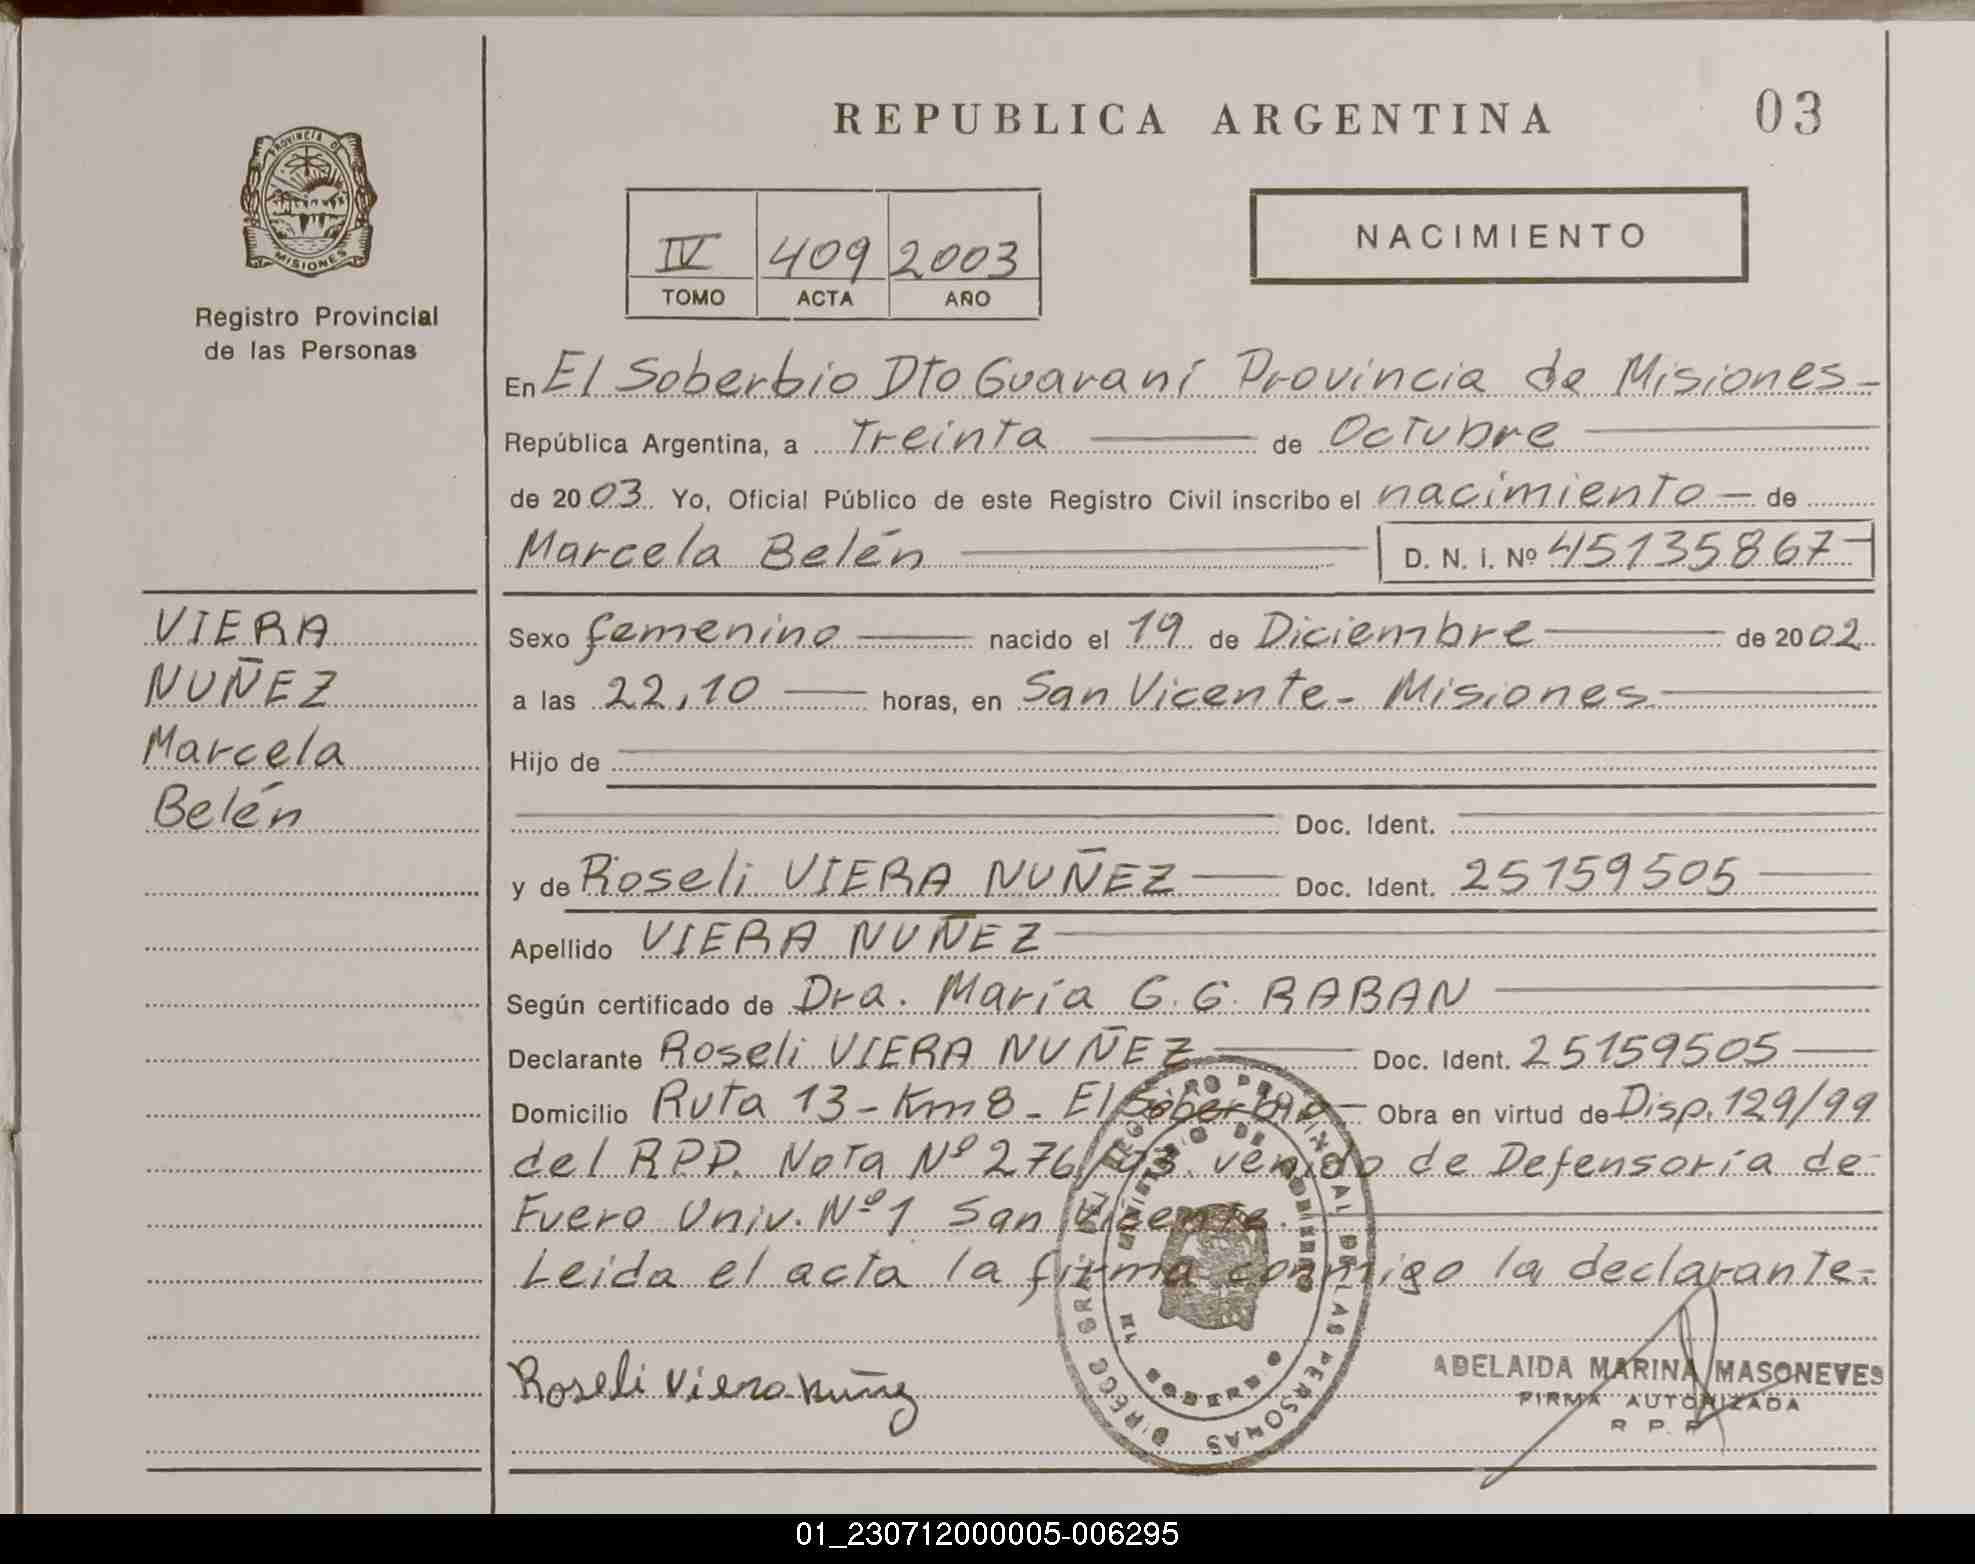 REPUBLICA ARGENTINA
03
PROVINCIA DE
MISIONES
Registro Provincial
de las Personas
IV 409 2003
TOMO ACTA AÑO
NACIMIENTO
En El Soberbio Dto Guaraní Provincia de Misiones-
República Argentina, a Treinta de Octubre
de 2003. Yo, Oficial Público de este Registro Civil inscribo el nacimiento - de
Marcela Belén D. N. I. Nº 45135867
VIERA
NUÑEZ
Marcela
Belén
Sexo femenino nacido el 19 de Diciembre de 2002
a las 22,10 horas, en San Vicente - Misiones
Hijo de
Doc. Ident.
y de Roseli VIERA NUÑEZ Doc. Ident. 25159505
Apellido VIERA NUÑEZ
Según certificado de Dra. María G. G. RABAN
Declarante Roseli VIERA NUÑEZ Doc. Ident. 25159505
Domicilio Ruta 13 - Km 8 - El Soberbio - Obra en virtud de Disp. 129/99
del RPP. Nota Nº 276/03. venido de Defensoría de
Fuero Univ. Nº 1 San Vicente.
Leida el acta la firma conmigo la declarante.
Roseli Viera Nuñez
DIRECC GRAL DEL REGISTRO PROVINCIAL DE LAS PERSONAS
MINISTERIO DE GOBIERNO
EL SOBERBIO
ADELAIDA MARINA MASONEVES
FIRMA AUTORIZADA
R. P. P.
01_230712000005-006295